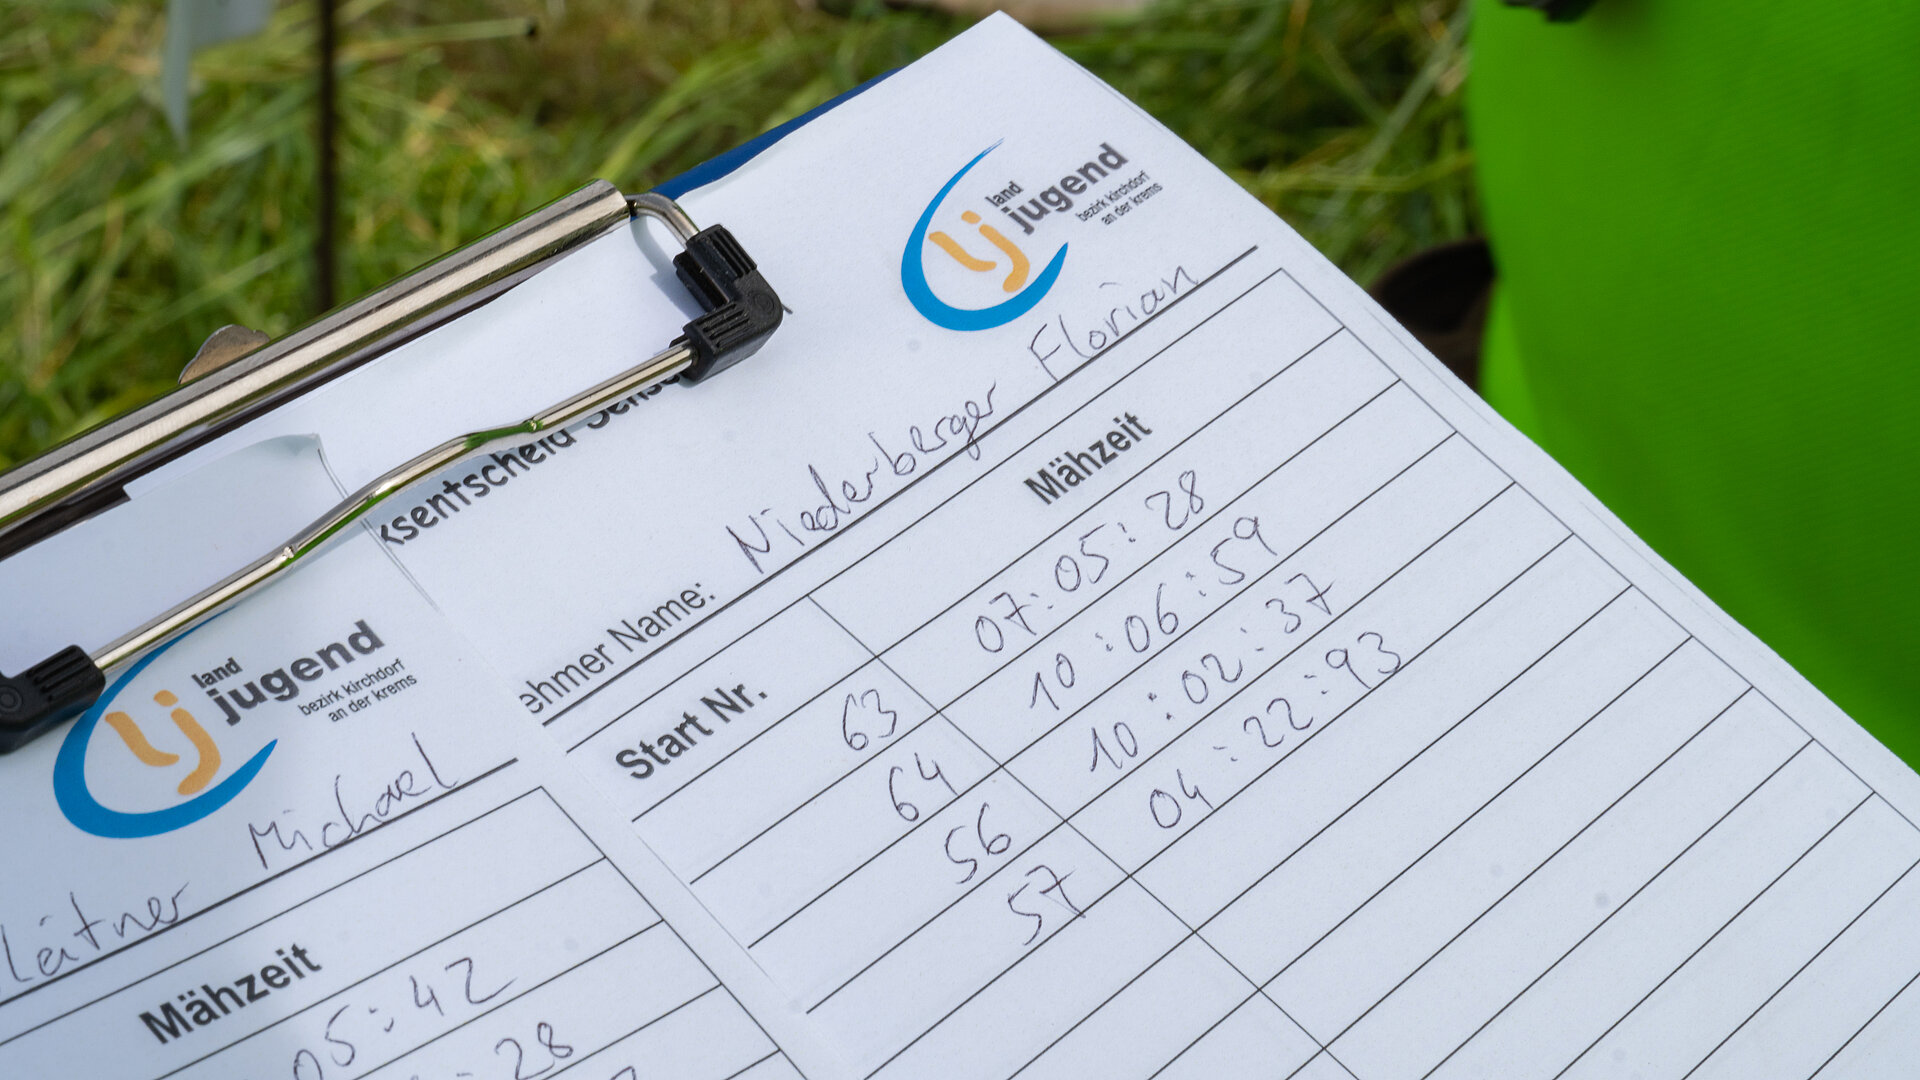 land
jugend
bezirk kirchdorf
an der krems
ksentscheid Sens
ehmer Name: Niederberger Florian
Start Nr. Mähzeit
63 07:05:28
64 10:06:59
56 10:02:37
57 04:22:93
land
jugend
bezirk kirchdorf
an der krems
leitner Michael
Mähzeit
05:42
:28